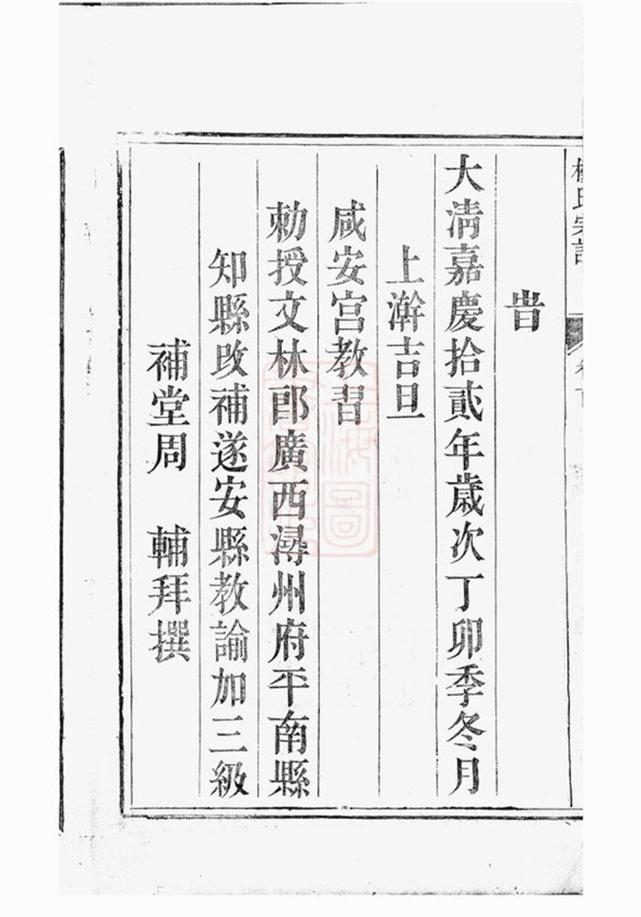 旹
大淸嘉慶拾貳年歲次丁卯季冬月
上澣吉旦
咸安宮教習
勅授文林郎廣西潯州府平南縣
知縣改補遂安縣教諭加三級
補堂周　輔拜撰